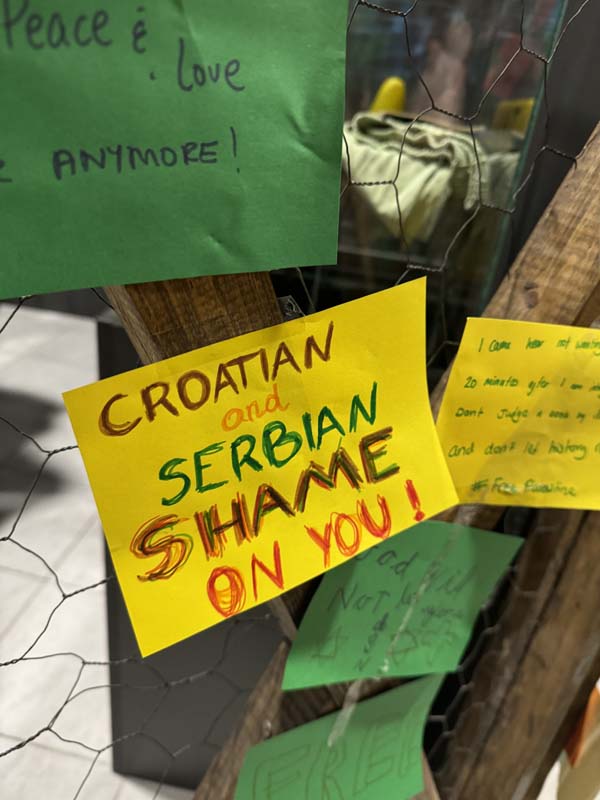 Peace &
love
ANYMORE!
CROATIAN
and
SERBIAN
SHAME
ON YOU!
I came hear not
20 minutes after I am
Dont Judge a book by
and don't let history
# Free Palestine
God
Not
FREE